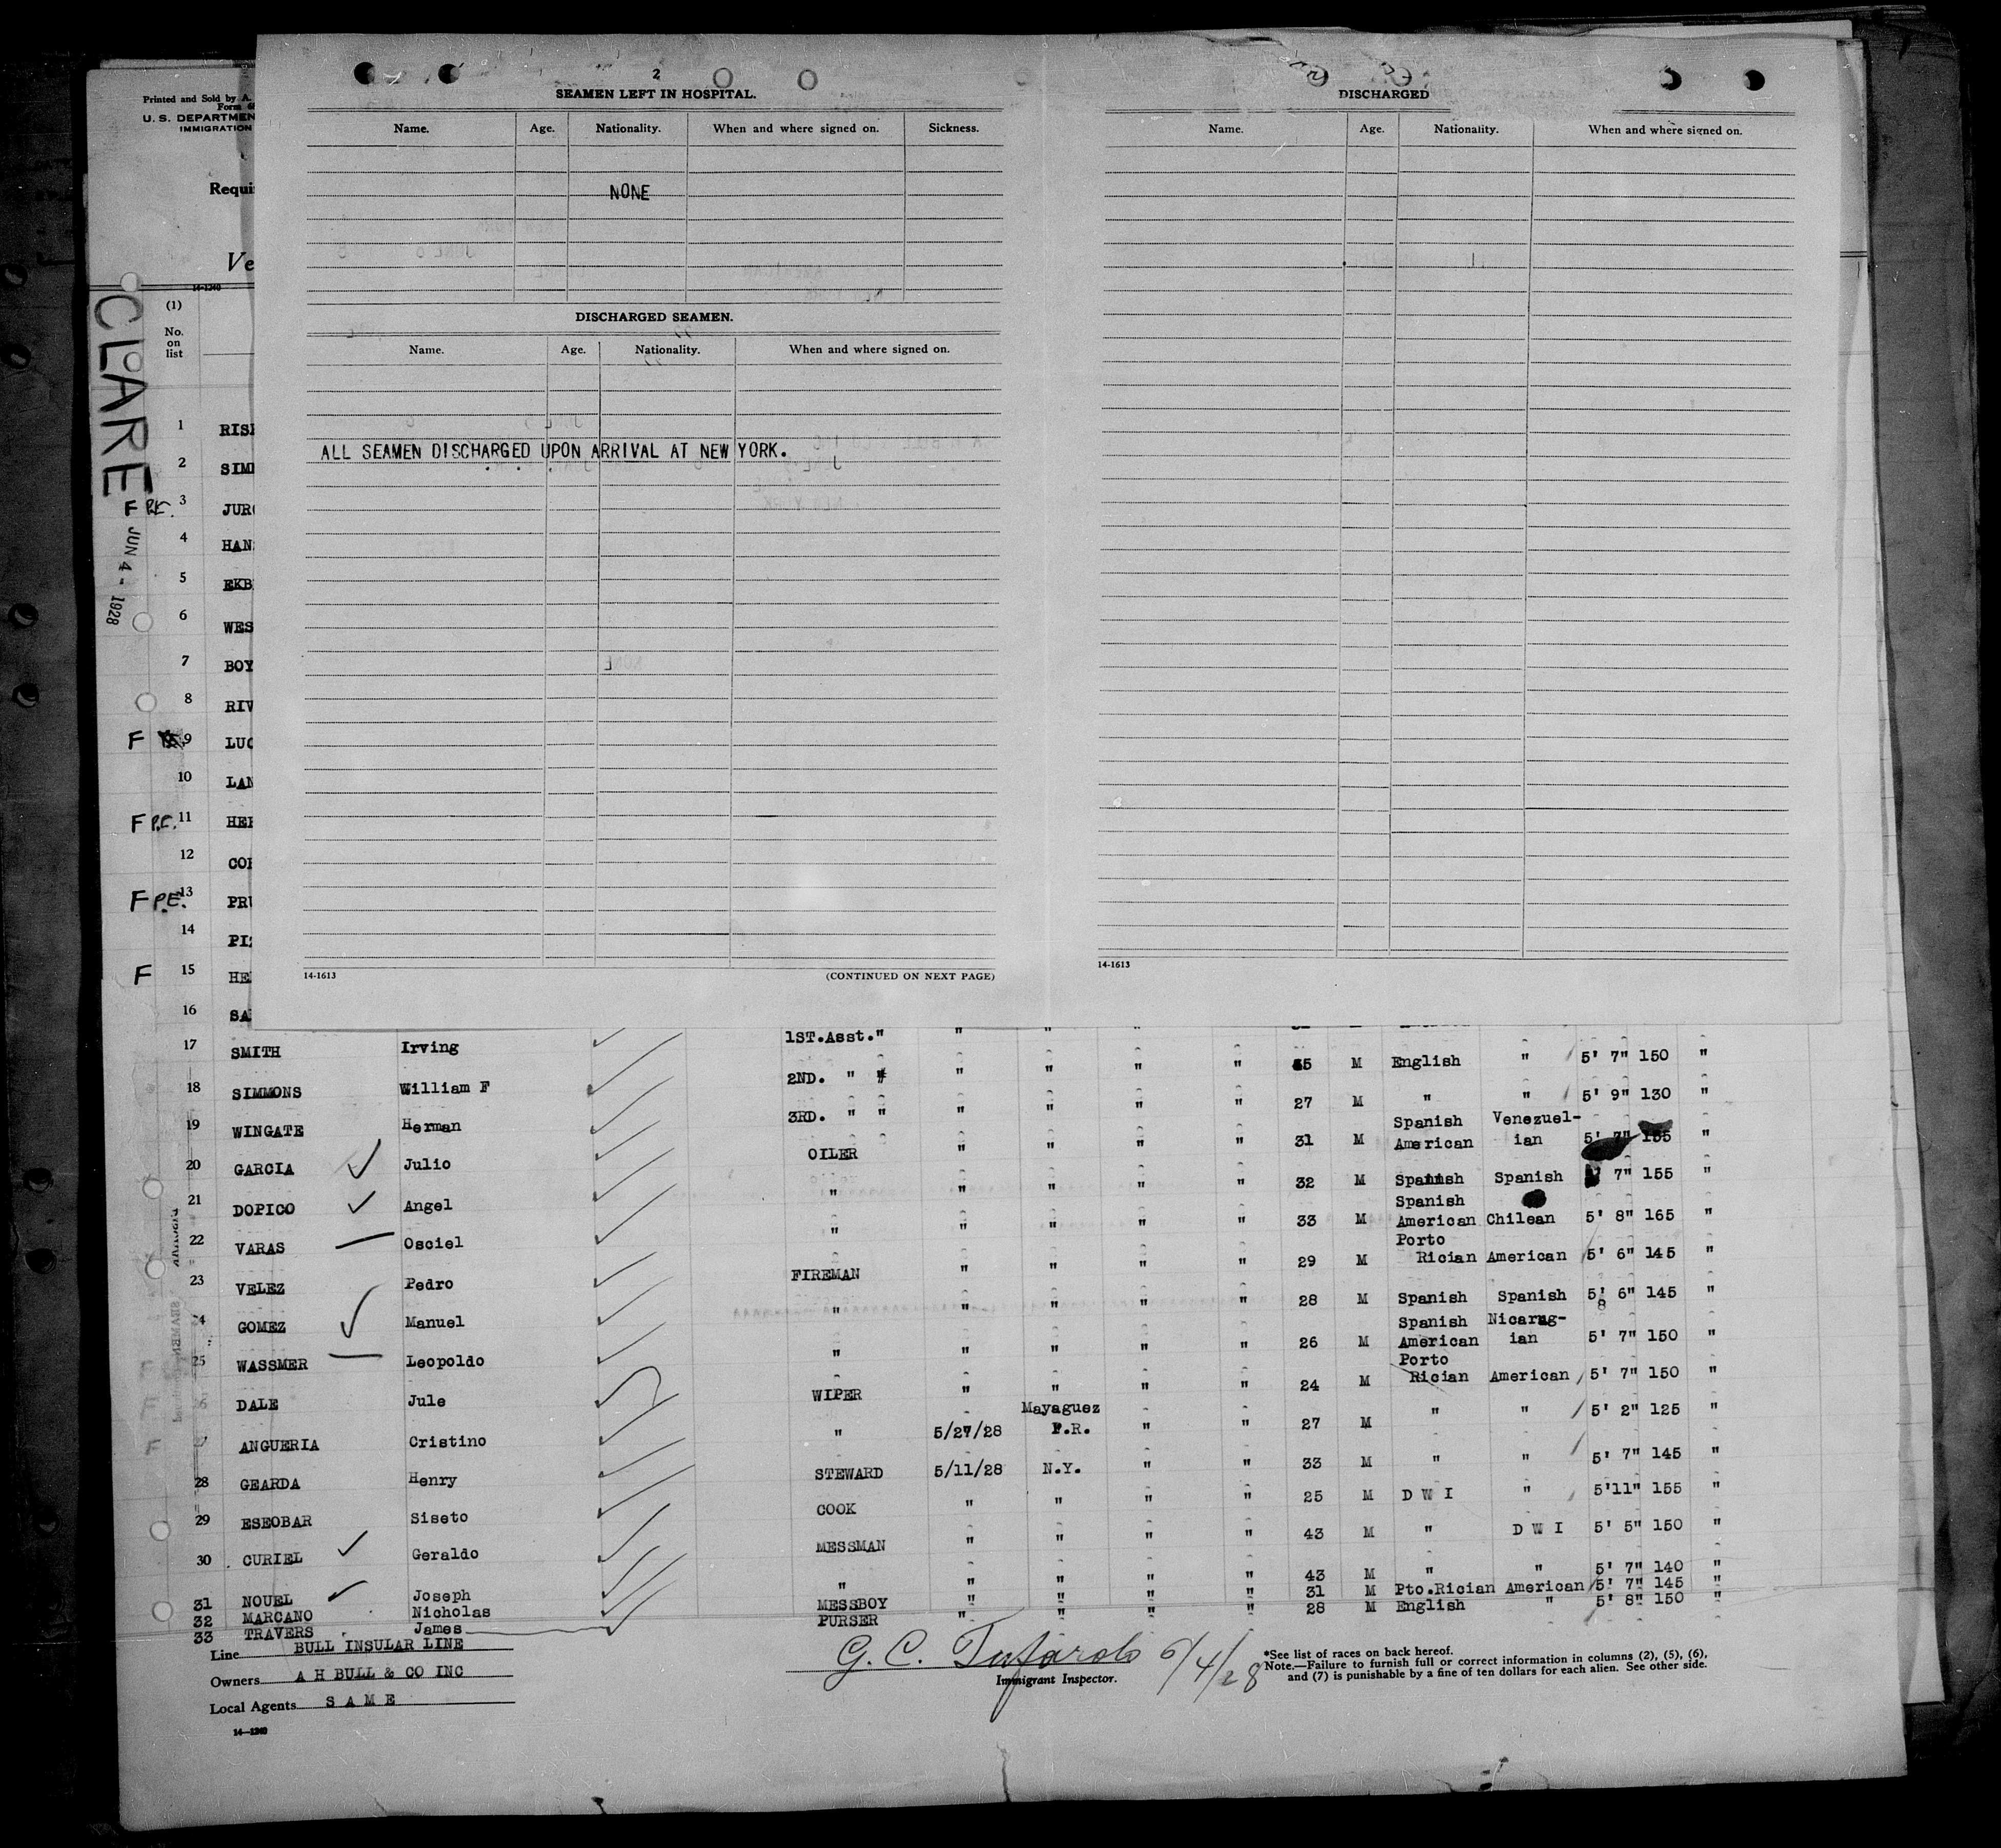 2
SEAMEN LEFT IN HOSPITAL.
Name. Age. Nationality. When and where signed on. Sickness.
NONE
DISCHARGED SEAMEN.
Name. Age. Nationality. When and where signed on.
ALL SEAMEN DISCHARGED UPON ARRIVAL AT NEW YORK.
14-1613 (CONTINUED ON NEXT PAGE)
DISCHARGED
Name. Age. Nationality. When and where signed on.
14-1613
Printed and Sold by A.
Form
U. S. DEPARTMEN
IMMIGRATION
Requi
Ve
14-1240
(1)
No. on list
CLARE
JUN 4 - 1928
1 RISI
2 SIM
F P.E. 3 JUR
4 HAN
5 EKB
6 WES
7 BOY
8 RIV
F 9 LUC
10 LAN
F P.E. 11 HER
12 COR
F P.E. 13 PRU
14 PI
F 15 HE
16 SA
17 SMITH Irving 1ST.Asst." " " "
18 SIMMONS William F 2ND. " " " " " " 35 M English " 5' 7" 150 "
19 WINGATE Herman 3RD. " " " " " " 27 M " " 5' 9" 130 "
20 GARCIA Julio OILER " " " " 31 M Spanish American Venezuel-ian 5' 7" 155 "
21 DOPICO Angel " " " " " 32 M Spanish Spanish 7" 155 "
22 VARAS Osciel " " " " " 33 M Spanish American Chilean 5' 8" 165 "
23 VELEZ Pedro FIREMAN " " " " 29 M Porto Rician American 5' 6" 145 "
24 GOMEZ Manuel " " " " " 28 M Spanish Spanish 5' 6" 145 "
8
25 WASSMER Leopoldo " " " " " 26 M Spanish American Nicarag-ian 5' 7" 150 "
26 DALE Jule WIPER " " " " 24 M Porto Rician American 5' 7" 150 "
27 ANGUERIA Cristino " 5/27/28 Mayaguez P.R. " " 27 M " " 5' 2" 125 "
28 GEARDA Henry STEWARD 5/11/28 N.Y. " " 33 M " " 5' 7" 145 "
29 ESEOBAR Siseto COOK " " " " 25 M D W I " 5'11" 155 "
30 CURIEL Geraldo MESSMAN " " " " 43 M " D W I 5' 5" 150 "
31 NOUEL Joseph " " " " " 43 M " " 5' 7" 140 "
32 MARCANO Nicholas MESSBOY " " " " 31 M Pto.Rician American 5' 7" 145 "
33 TRAVERS James PURSER " " " " 28 M English " 5' 8" 150 "
Line BULL INSULAR LINE
Owners A H BULL & CO INC
Local Agents S A M E
14-1240
6/4/28
Immigrant Inspector.
*See list of races on back hereof.
Note.—Failure to furnish full or correct information in columns (2), (5), (6),
and (7) is punishable by a fine of ten dollars for each alien. See other side.